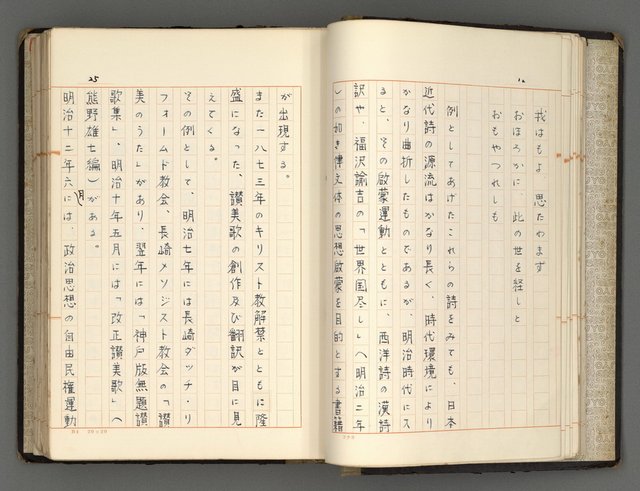 我はもよ　思たやまず
おほろかに、此の世を経しと
おもやつれしも
例としてあげたこれらの詩をみても、日本
近代詩の源流はかなり長く、時代環境により
かなり曲折したものであるが、明治時代にス
ると、その啟蒙運動とともに、西洋詩の漢詩
訳や、福沢諭吉の「世界国尽し」(明治二年
)の如き 文体の思想啟蒙を目的とする書籍
25
が出現する。
また一八七三年のキリスト教解禁とともに隆
盛になった、讃美歌の創作及び翻訳が目に見
えてくる。
その例として、明治七年には長崎ダッチ・リ
フォームド教会、長崎メソジスト教会の「讃
美のうた」があり、翌年には「神戸版無題讃
歌集」、明治十年五月には「改正讃美歌」(
熊野雄七編)がある。
明治十二年六月には、政治思想の自由民権運動